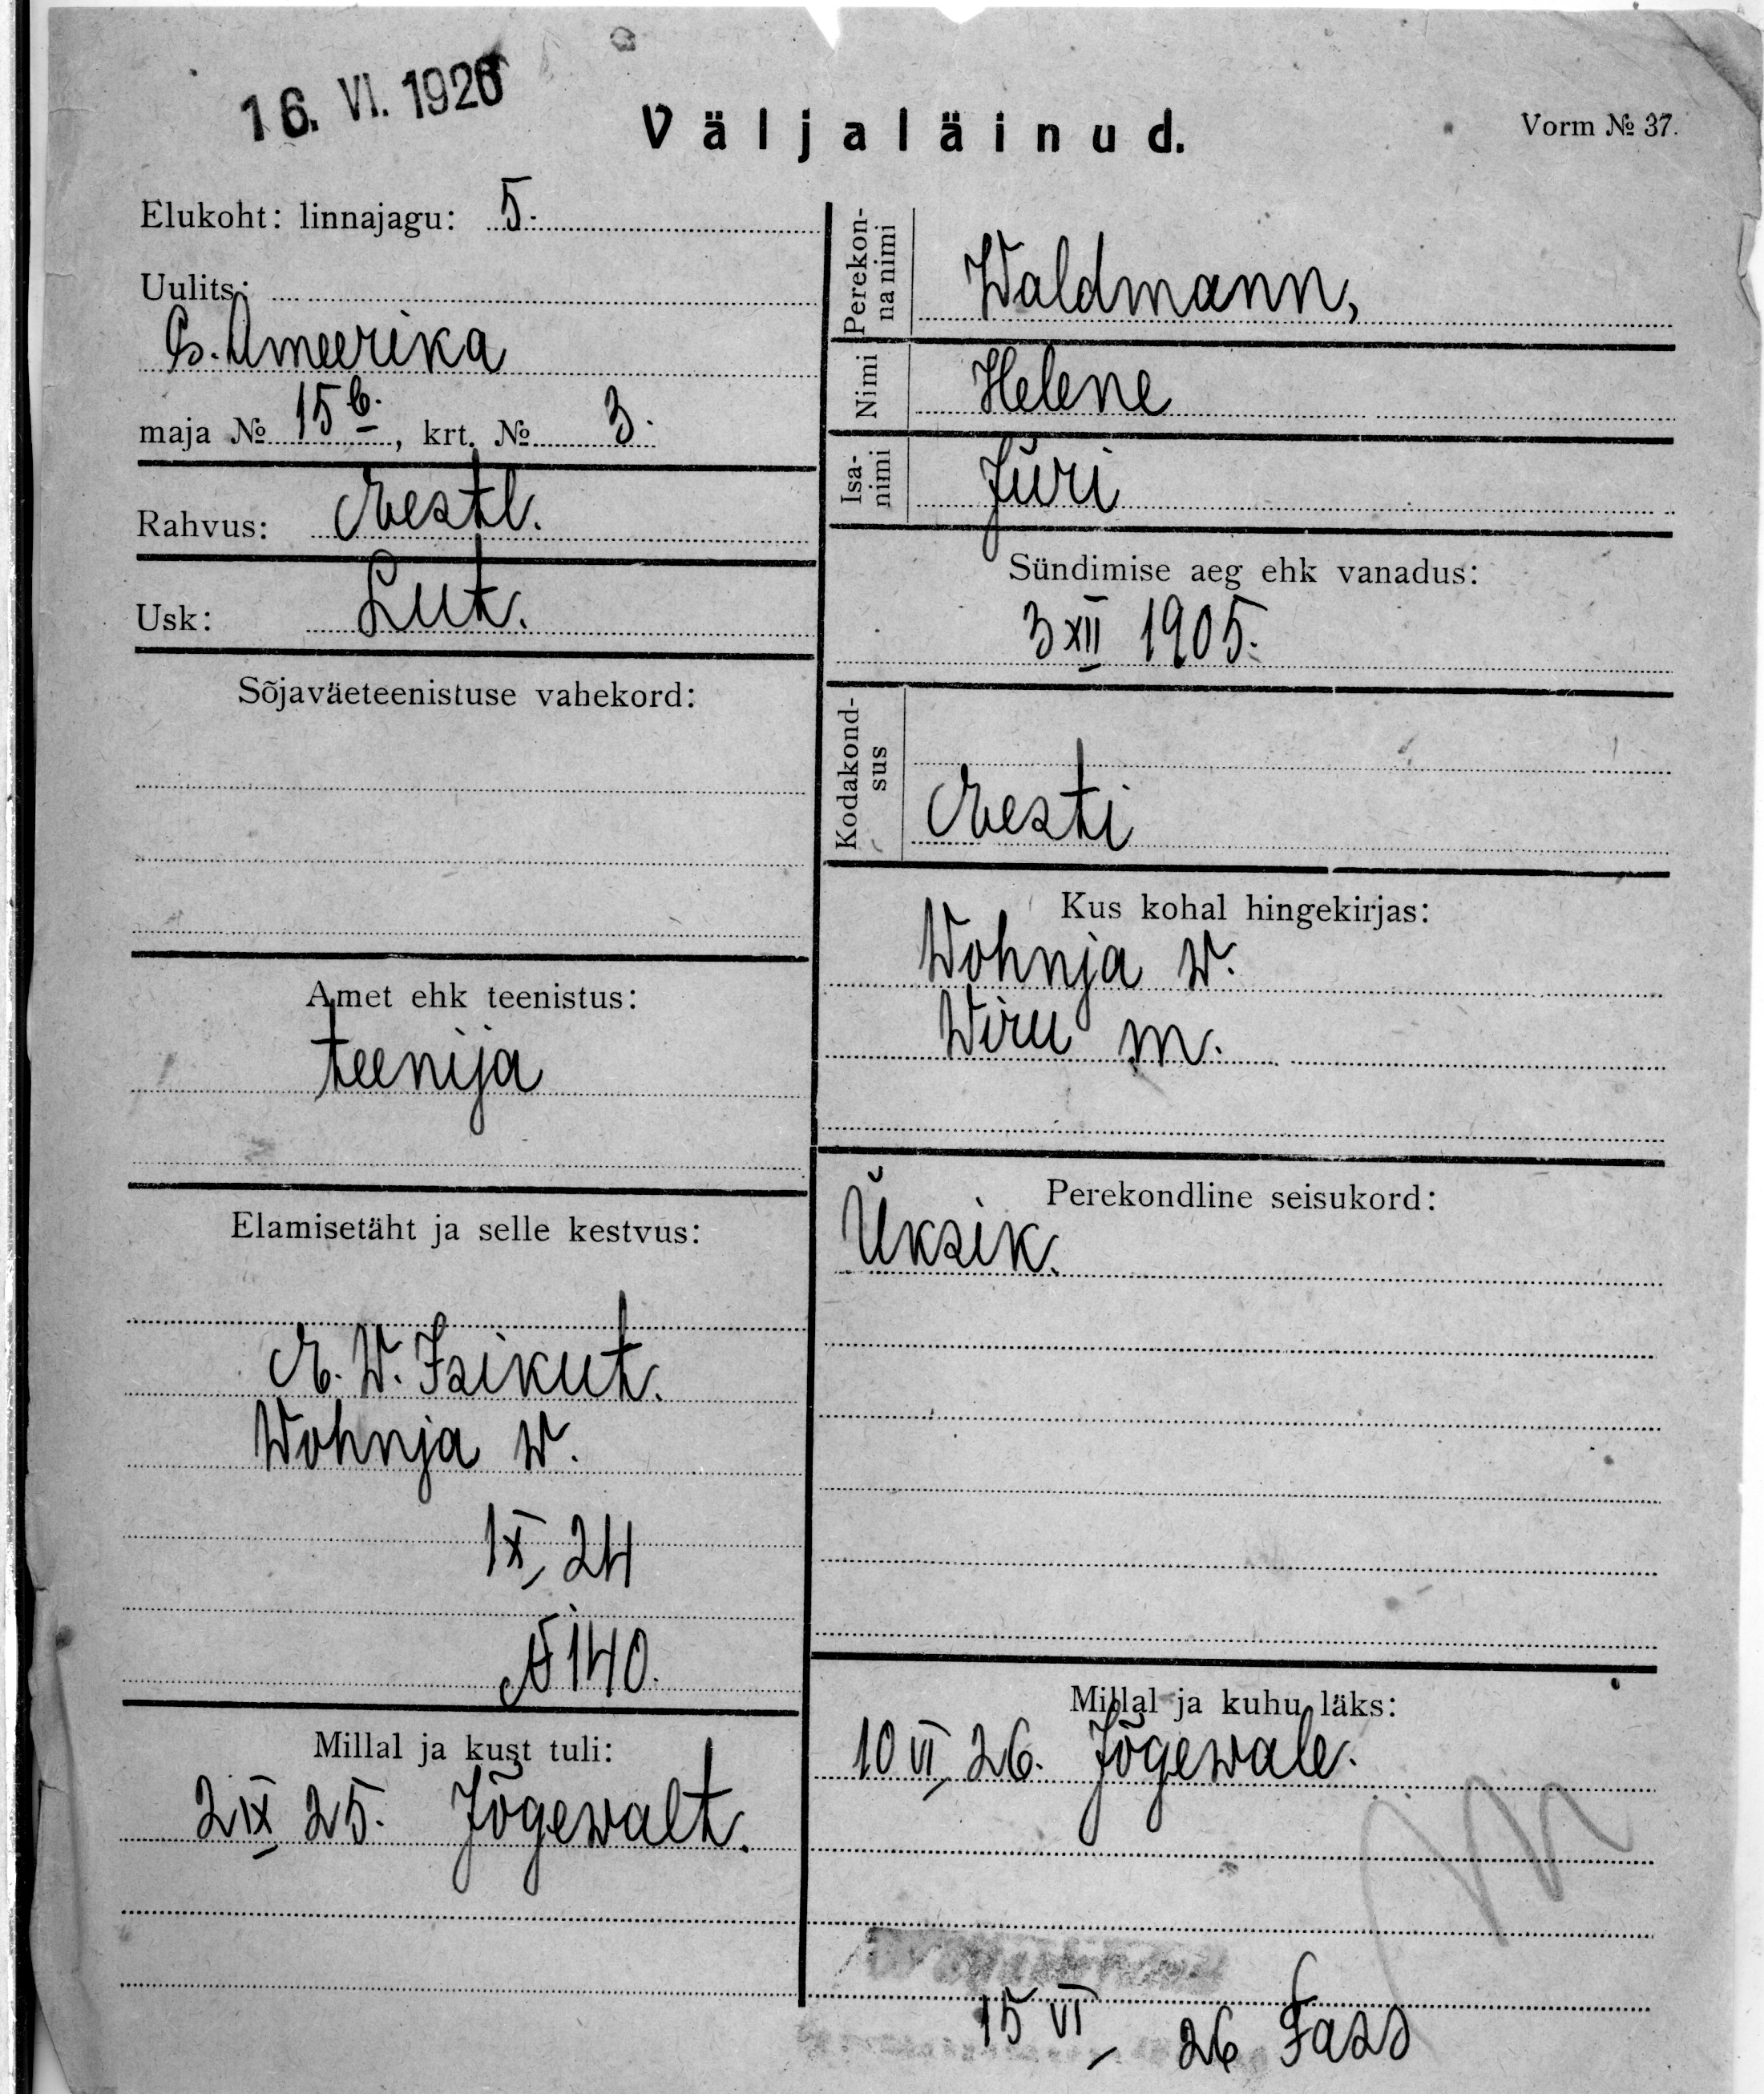 16. VI. 1926
Väljaläinud.
Vorm № 37.
Elukoht: linnajagu: 5.
Uulits:
S. Ameerika
maja № 15 b., krt. № 3.
Rahvus: Eestl.
Usk: Lut.
Sõjaväeteenistuse vahekord:
Amet ehk teenistus:
teenija
Elamisetäht ja selle kestvus:
E. W. Isikut.
Wohnja w.
1 X 24
№ 140.
Millal ja kust tuli:
2 IX 25. Jõgewalt.
Perekon-
na nimi
Waldmann,
Nimi Helene
Isa-
nimi
Jüri
Sündimise aeg ehk vanadus:
3 XII 1905.
Kodakond-
sus
Eesti
Kus kohal hingekirjas:
Wohnja w.
Wiru m.
Perekondline seisukord:
Üksik.
Millal ja kuhu läks:
10 VI 26. Jõgewale.
15 VI 26